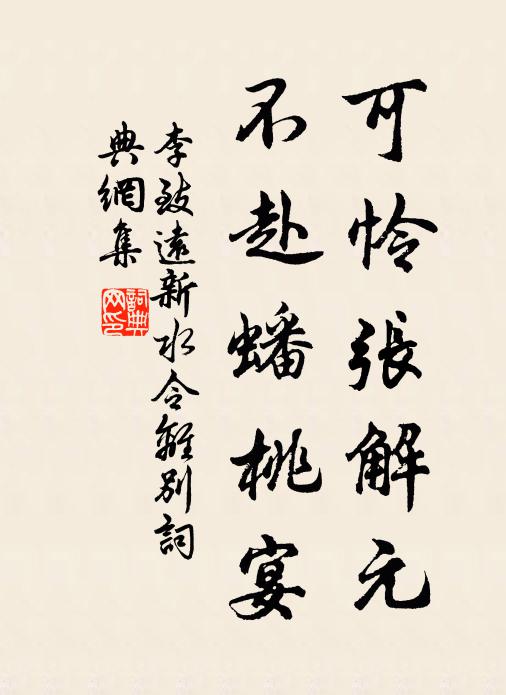 可憐張解元
不赴蟠桃宴
李致遠新水令離別詞
典網集
詞典網印